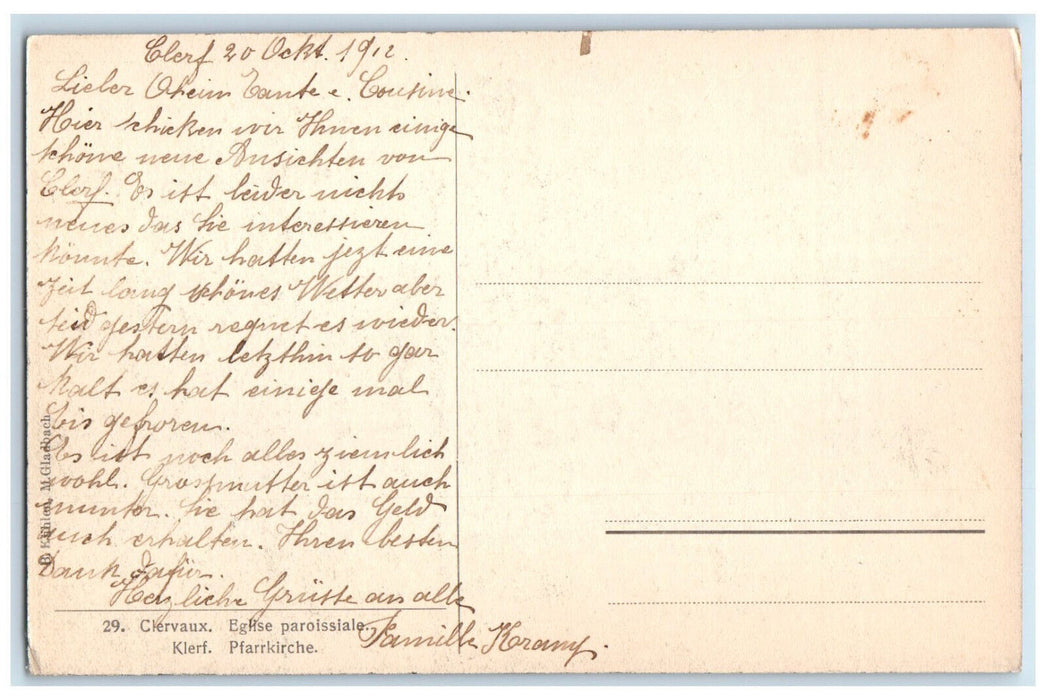 Clerf 20 Ockt. 1912
Lieber Oheim Tante e. Cousine.
Hier schicken wir Ihnen einige
schöne neue Ansichten von
Clerf. Es ist leider nichts
neues das Sie interessieren
könnte. Wir hatten jezt eine
Zeit lang schönes Wetter aber
seid gestern regnet es wieder.
Wir hatten letzthin so gar
kalt es hat einige mal
Eis gefroren.
Es ist noch alles ziemlich
wohl. Grossmutter ist auch
munter. Sie hat das Geld
auch erhalten. Ihren besten
Dank dafür.
Herzliche Grüsse an alle
Famille
29. Clervaux. Eglise paroissiale.
Klerf. Pfarrkirche.
B. Kühlen, M. Gladbach